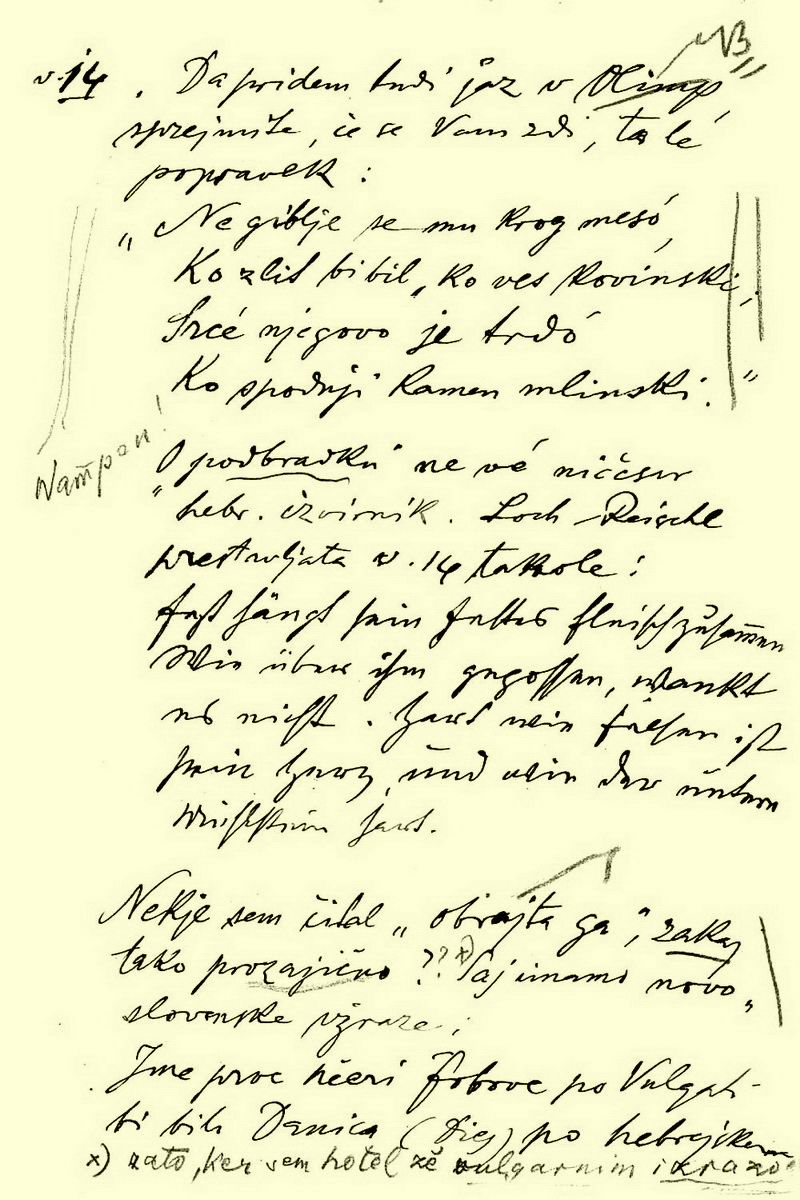 v. 14. Da pridem tudi jaz v Olimp,
sprejmite, če se Vam zdi, ta le
popravek:
„Ne giblje se mu krog mesó,
Ko zlit bi bil, ko ves kovinski;
Srcé njegovo je trdó
Ko spodnji kamen mlinski."
Wampen!
„O podbradku" ne vé ničesar
hebr. izvirnik. Loch Reischl
prestavljata v. 14 takole:
fest hängt sein fettes Fleisch zusam̅en
Wie über ihm gegossen, wankt
es nicht. Hart wie Felsen ist
sein Herz, und wie der untere
hart.
Nekje sem čital „obrajta ga", zakaj
tako prozajično?? x) Saj imamo novo„
slovenske izraze;
Ime prve hčeri Jobove po Vulgati
bi bilo Danica (Dies) po hebrejskem
x) zato, ker sem hotel že vulgarnim izrazo